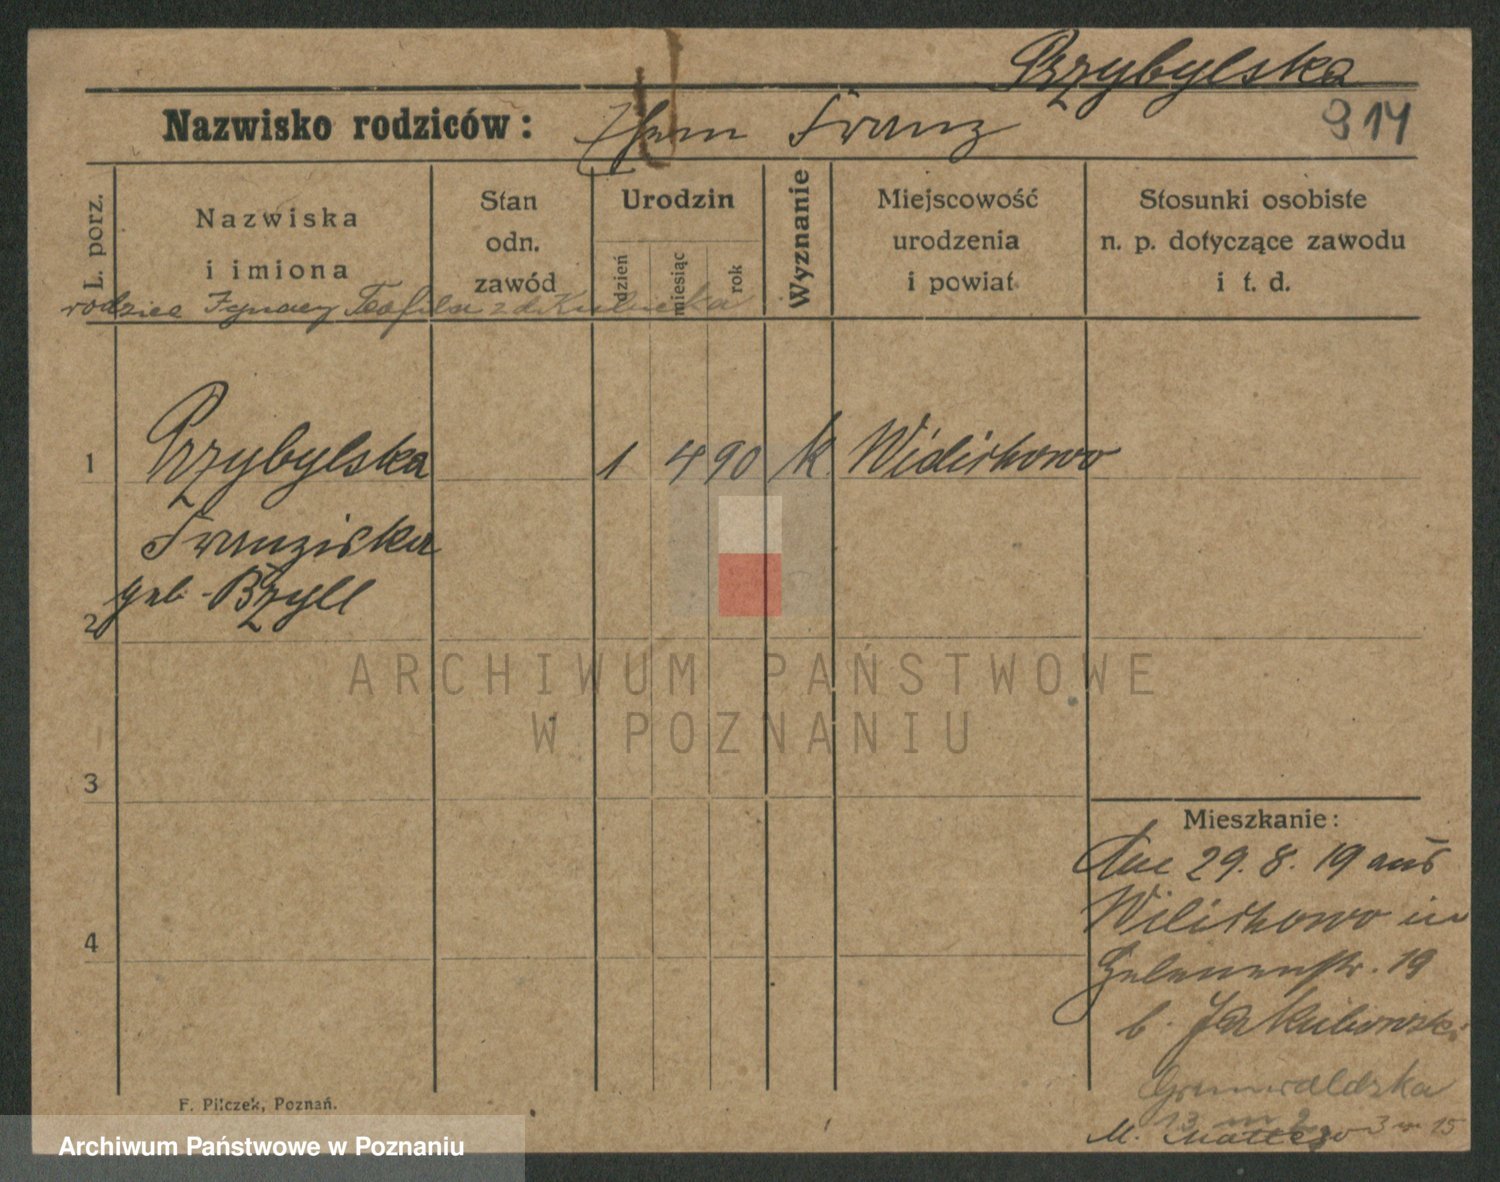 Przybylska
Nazwisko rodziców: Franz 814
L. porz.
Nazwiska
i imiona
Stan
odn.
zawód
Urodzin
dzień
miesiąc
rok
Wyznanie
Miejscowość
urodzenia
i powiat
Stosunki osobiste
n. p. dotyczące zawodu
i t. d.
rodzice Ignacy Teofila z d.
1 Przybylska 1 4 90 k. Widirkowo
Franziska
geb. Bzyll
2
3
4
ARCHIWUM PAŃSTWOWE
W POZNANIU
Mieszkanie:
29. 8. 19 aus
in
19
b. Jakubowski
Grunwaldzka
13 m 2
M. 3 m 15
F. Pilczek, Poznań.
Archiwum Państwowe w Poznaniu